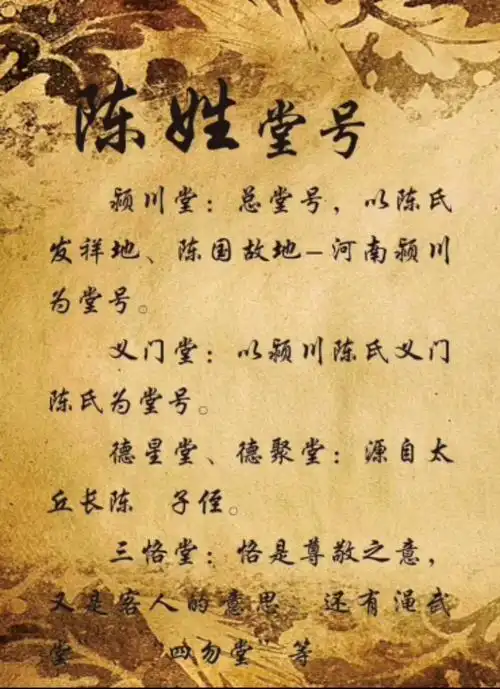 陈姓堂号
颍川堂：总堂号，以陈氏
发祥地、陈国故地-河南颍川
为堂号。
义门堂：以颍川陈氏义门
陈氏为堂号。
德星堂、德聚堂：源自太
丘长陈 子侄。
三恪堂：恪是尊敬之意，
又是客人的意思 还有渑武
堂" "四勿堂" 等